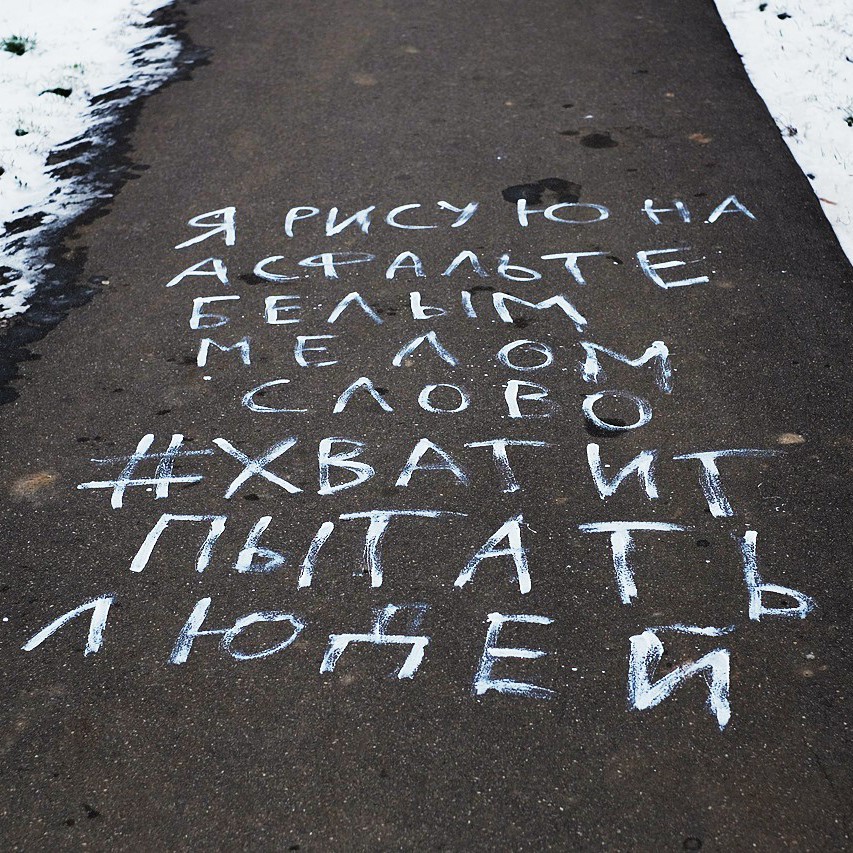 Я РИСУЮ НА
АСФАЛЬТЕ
БЕЛЫМ
МЕЛОМ
СЛОВО
#ХВАТИТ
ПЫТАТЬ
ЛЮДЕЙ